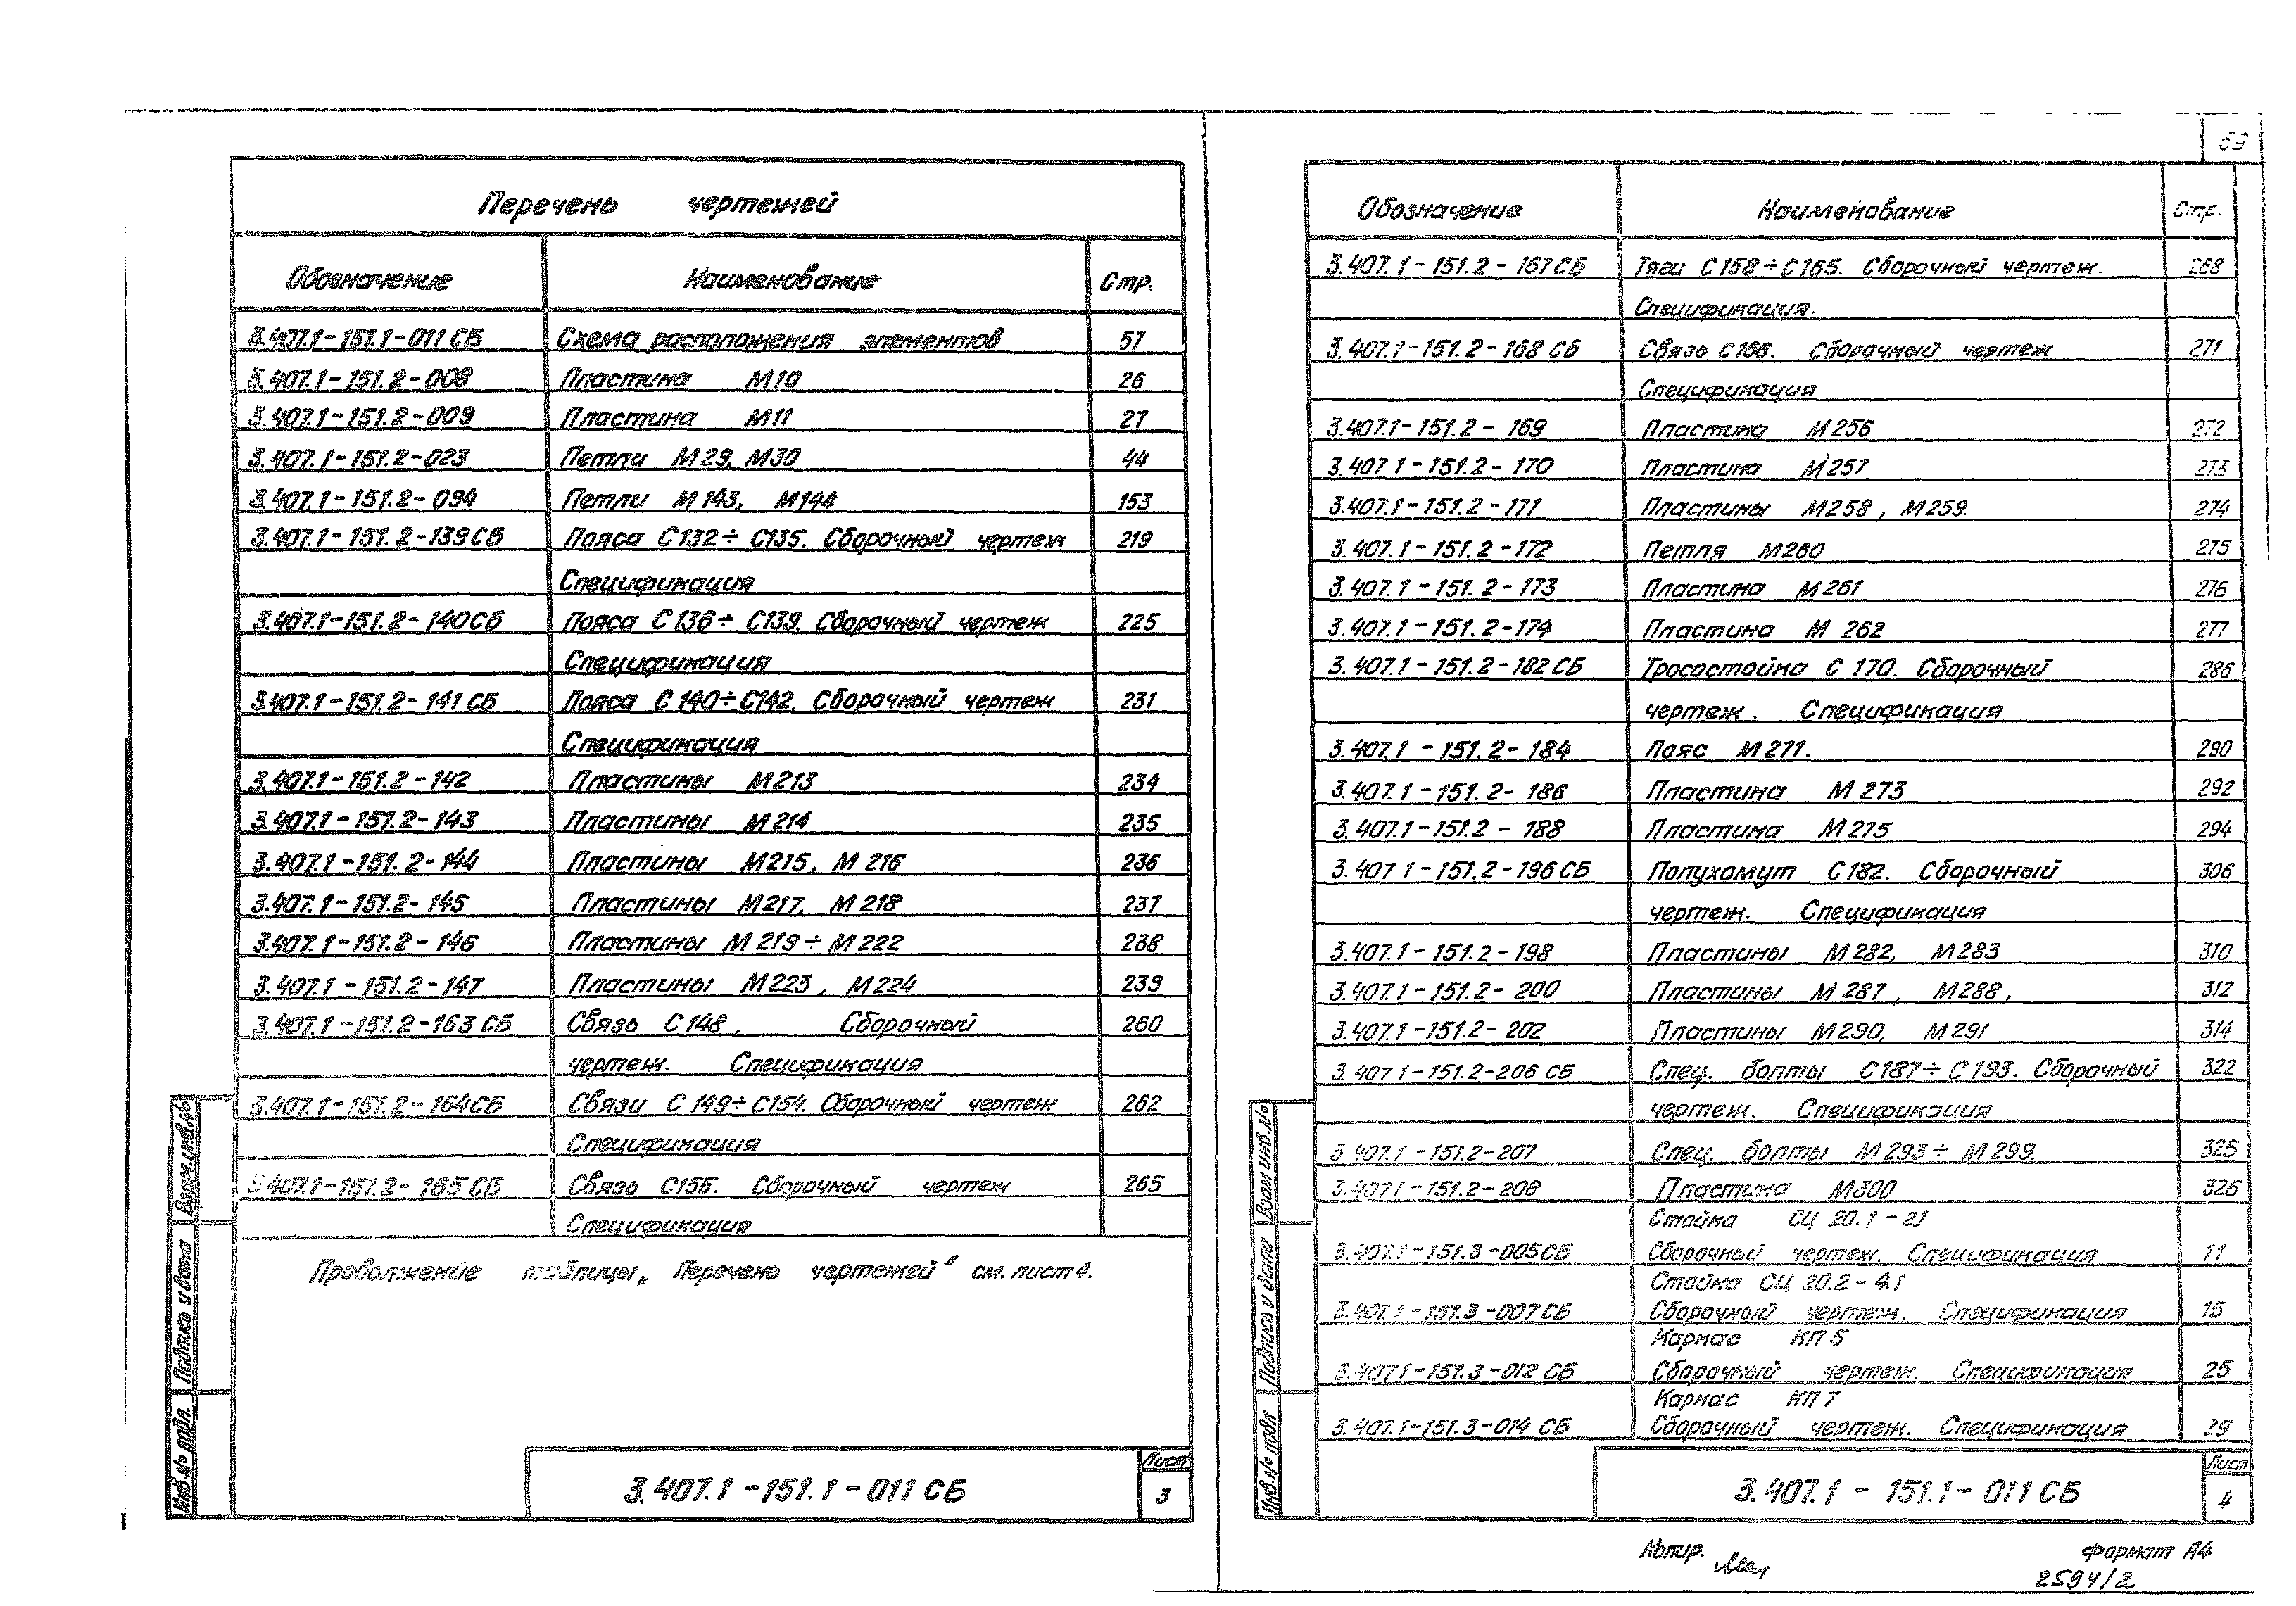 Перечень чертежей
Обозначение Наименование Стр.
3.407.1-151.1-011 СБ Схема расположения элементов 57
3.407.1-151.2-008 Пластина М10 26
3.407.1-151.2-009 Пластина М11 27
3.407.1-151.2-023 Петли М29, М30 44
3.407.1-151.2-094 Петли М143, М144 153
3.407.1-151.2-139 СБ Пояса С132÷С135. Сборочный чертеж 219
Спецификация
3.407.1-151.2-140 СБ Пояса С136÷С139. Сборочный чертеж 225
Спецификация
3.407.1-151.2-141 СБ Пояса С140÷С142. Сборочный чертеж 231
Спецификация
3.407.1-151.2-142 Пластины М213 234
3.407.1-151.2-143 Пластины М214 235
3.407.1-151.2-144 Пластины М215, М216 236
3.407.1-151.2-145 Пластины М217, М218 237
3.407.1-151.2-146 Пластины М219÷М222 238
3.407.1-151.2-147 Пластины М223, М224 239
3.407.1-151.2-163 СБ Связь С148, Сборочный 260
чертеж. Спецификация
3.407.1-151.2-164 СБ Связи С149÷С154. Сборочный чертеж 262
Спецификация
3.407.1-151.2-165 СБ Связь С155. Сборочный чертеж 265
Спецификация
Продолжение таблицы „Перечень чертежей" см. лист 4.
Взам.инв.№
Подпись и дата
Инв.№ подл.
3.407.1-151.1-011 СБ
Лист
3
Обозначение Наименование Стр.
3.407.1-151.2-167 СБ Тяги С158÷С165. Сборочный чертеж. 268
Спецификация.
3.407.1-151.2-168 СБ Связь С166. Сборочный чертеж 271
Спецификация
3.407.1-151.2-169 Пластина М256 272
3.407 1-151.2-170 Пластина М257 273
3.407.1-151.2-171 Пластины М258, М259. 274
3.407.1-151.2-172 Петля М260 275
3.407.1-151.2-173 Пластина М261 276
3.407.1-151.2-174 Пластина М 262 277
3.407.1-151.2-182 СБ Тросостойка С 170. Сборочный 286
чертеж. Спецификация
3.407.1-151.2-184 Пояс М271. 290
3.407.1-151.2-186 Пластина М 273 292
3.407.1-151.2-188 Пластина М275 294
3.407 1-151.2-196 СБ Полухомут С182. Сборочный 306
чертеж. Спецификация
3.407.1-151.2-198 Пластины М282, М283 310
3.407.1-151.2-200 Пластины М287, М288, 312
3.407.1-151.2-202 Пластины М290, М291 314
3.407 1-151.2-206 СБ Спец. болты С187÷С193. Сборочный 322
чертеж. Спецификация
3 407.1-151.2-207 Спец. болты М293÷М299. 325
3.407.1-151.2-208 Пластина М300 326
Стойка СЦ 20.1-2.1
3.407.1-151.3-005 СБ Сборочный чертеж. Спецификация 11
Стойка СЦ 20.2-4.1
3.407.1-151.3-007 СБ Сборочный чертеж. Спецификация 15
Каркас КП 5
3.407.1-151.3-012 СБ Сборочный чертеж. Спецификация 25
Каркас КП 7
3.407.1-151.3-014 СБ Сборочный чертеж. Спецификация 29
Взам инв.№
Подпись и дата
Инв.№ подл
3.407.1-151.1-011 СБ
Лист
4
Копир.
Формат А4
2594/2